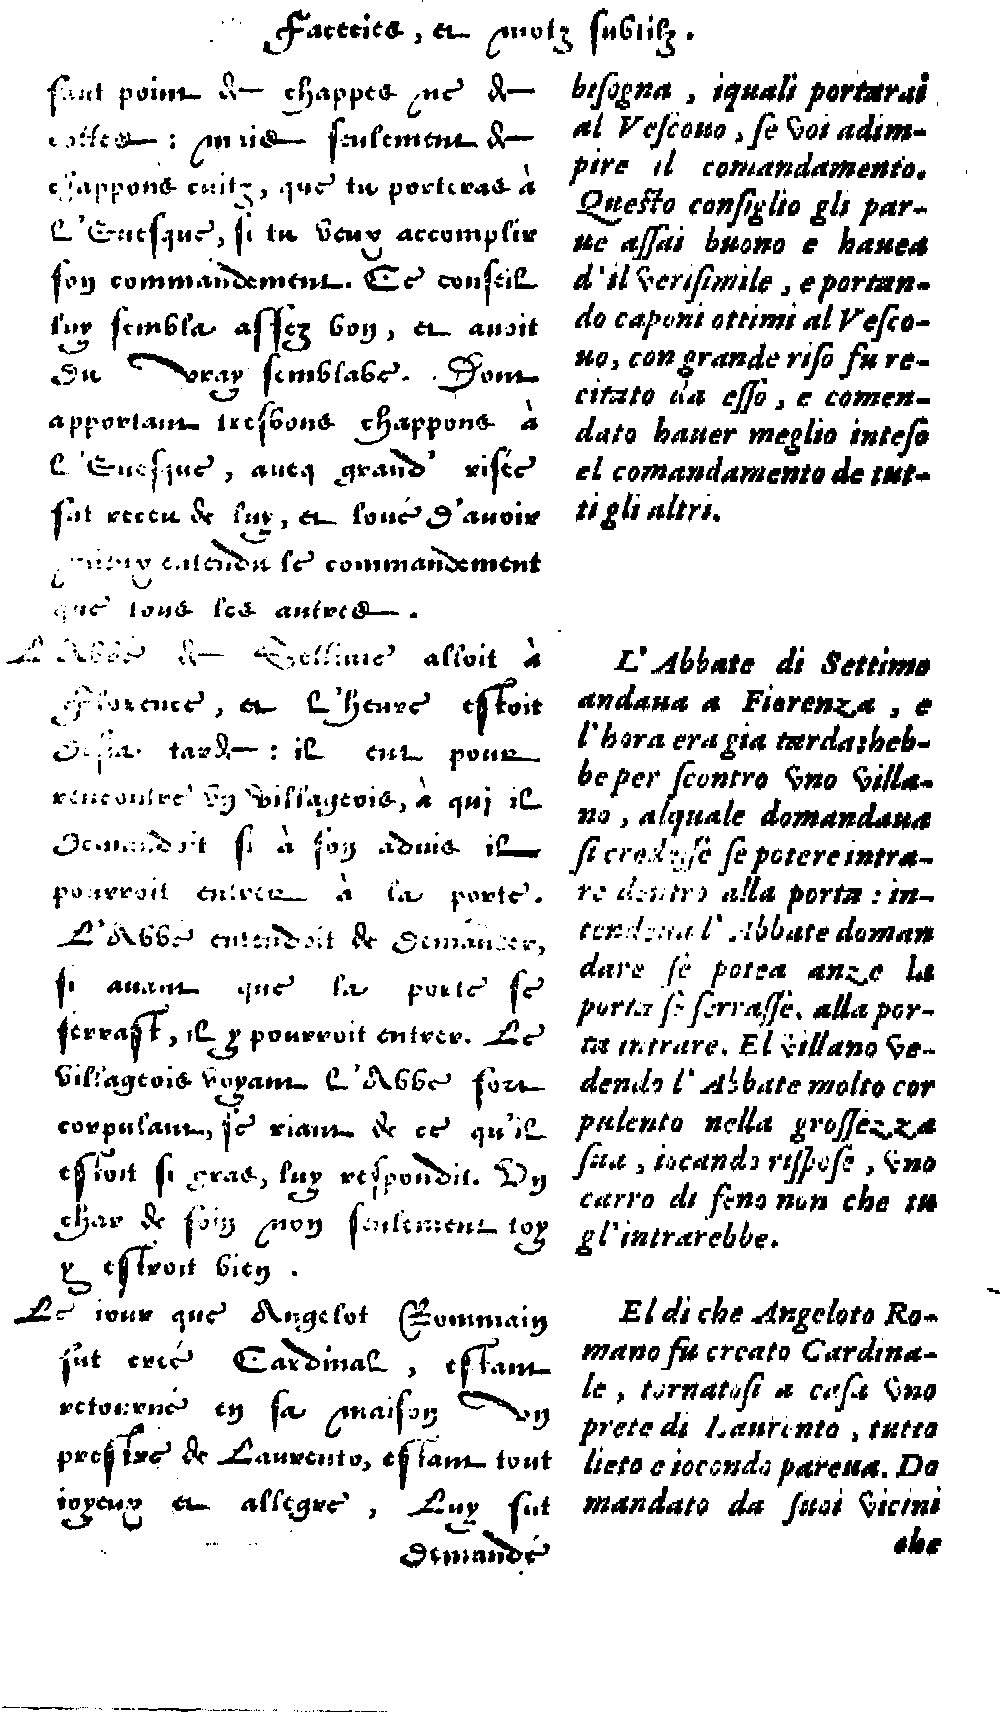 Facecies, et motz subtilz.
faut point de chappes ne de
cottes : mais seulement de
chappons cuitz, que tu porteras à
L'Euesque, si tu veux accomplir
son commandement. Ce conseil
luy sembla assez bon, et auoit
du vray semblable. Dont
apportant tresbons chappons à
L'Euesque, aueq grand' risée
fut receu de luy, et loué d'auoir
mieux entendu le commandement
que tous les autres.
L'Abbé de Settime alloit à
Florence, et L'heure estoit
desia tarde : il eut pour
rencontre vn villageois, à qui il
demandoit si à son aduis il
pourroit entrer à la porte.
L'Abbé entendoit de demander,
si auant que la porte se
serrast, il y pourroit entrer. Le
villageois voyant L'Abbé fort
corpulant, se riant de ce qu'il
estoit si gras, luy respondit. Vn
char de foin non seulement toy
y entroit bien.
Le iour que Angelot Rommain
fut creé Cardinal, estant
retourné en sa maison vn
prestre de Laurento, estant tout
ioyeux et allegre, Luy fut
demandé
bisogna, iquali portarai
al Vescouo, se voi adim-
pire il comandamento.
Questo consiglio gli par-
ue assai buono e hauea
d'il verisimile, e portan-
do caponi ottimi al Vesco-
uo, con grande riso fu re-
citato da esso, e comen-
dato hauer meglio inteso
el comandamento de tut-
ti gli altri.
L'Abbate di Settimo
andaua a Fiorenza, e
l'hora era gia tarda: heb-
be per scontro vno villa-
no, alquale domandaua
si credesse se potere intra-
re dentro alla porta : in-
tendeua l'Abbate doman
dare se potea anze la
porta se serrasse, alla por-
ta intrare. El villano ve-
dendo l'Abbate molto cor
pulento nella grossezza
sua, iocando rispose, vno
carro di feno non che tu
gl'intrarebbe.
El di che Angeloto Ro-
mano fu creato Cardina-
le, tornatosi a casa vno
prete di Laurento, tutto
lieto e iocondo pareua. Do
mandato da suoi vicini
che